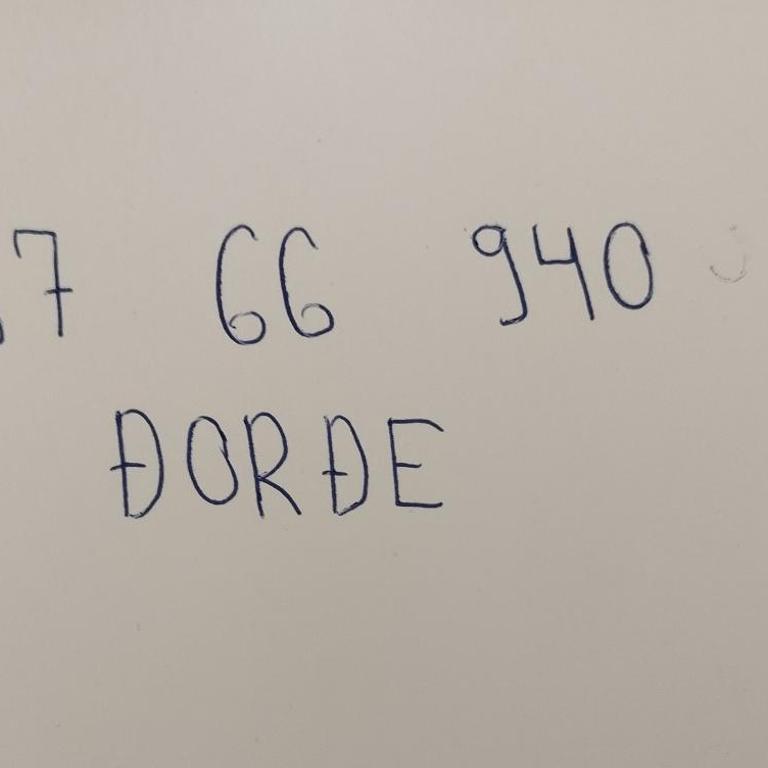 7 66 940
ĐORĐE